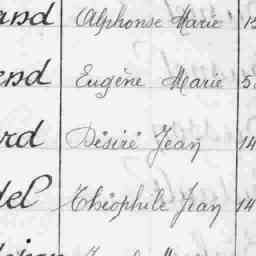 and Alphonse Marie
end Eugène Marie
rd Désiré Jean 14
del Théophile Jean 14